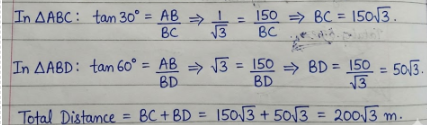 In △ABC: tan 30° = AB/BC ⇒ 1/√3 = 150/BC ⇒ BC = 150√3.
In △ABD: tan 60° = AB/BD ⇒ √3 = 150/BD ⇒ BD = 150/√3 = 50√3.
Total Distance = BC + BD = 150√3 + 50√3 = 200√3 m.